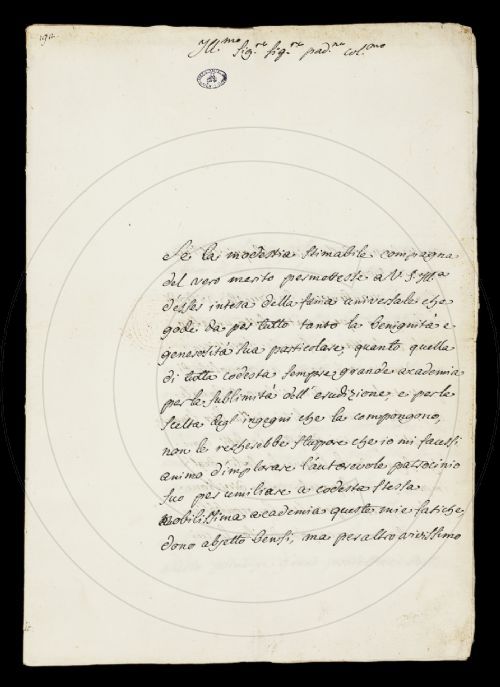 Ill.mo sig.re sig.re pad.ne col.mo
Se la modestia stimabile compagna
del vero merito permettesse a V. S. Ill.a
d'esser intesa della fama universale che
gode da per tutto tanto la benignità e
generosità sua particolare, quanto quella
di tutta codesta sempre grande academia
per la sublimità dell'erudizione, e per la
scelta degl'ingegni che la compongono,
non le recherebbe stuppore che io mi facessi
animo d'implorare l'autorevole patrocinio
suo per umiliare a codesta stessa
nobilissima academia queste mie fatiche,
dono abjetto bensì, ma per altro vivissimo